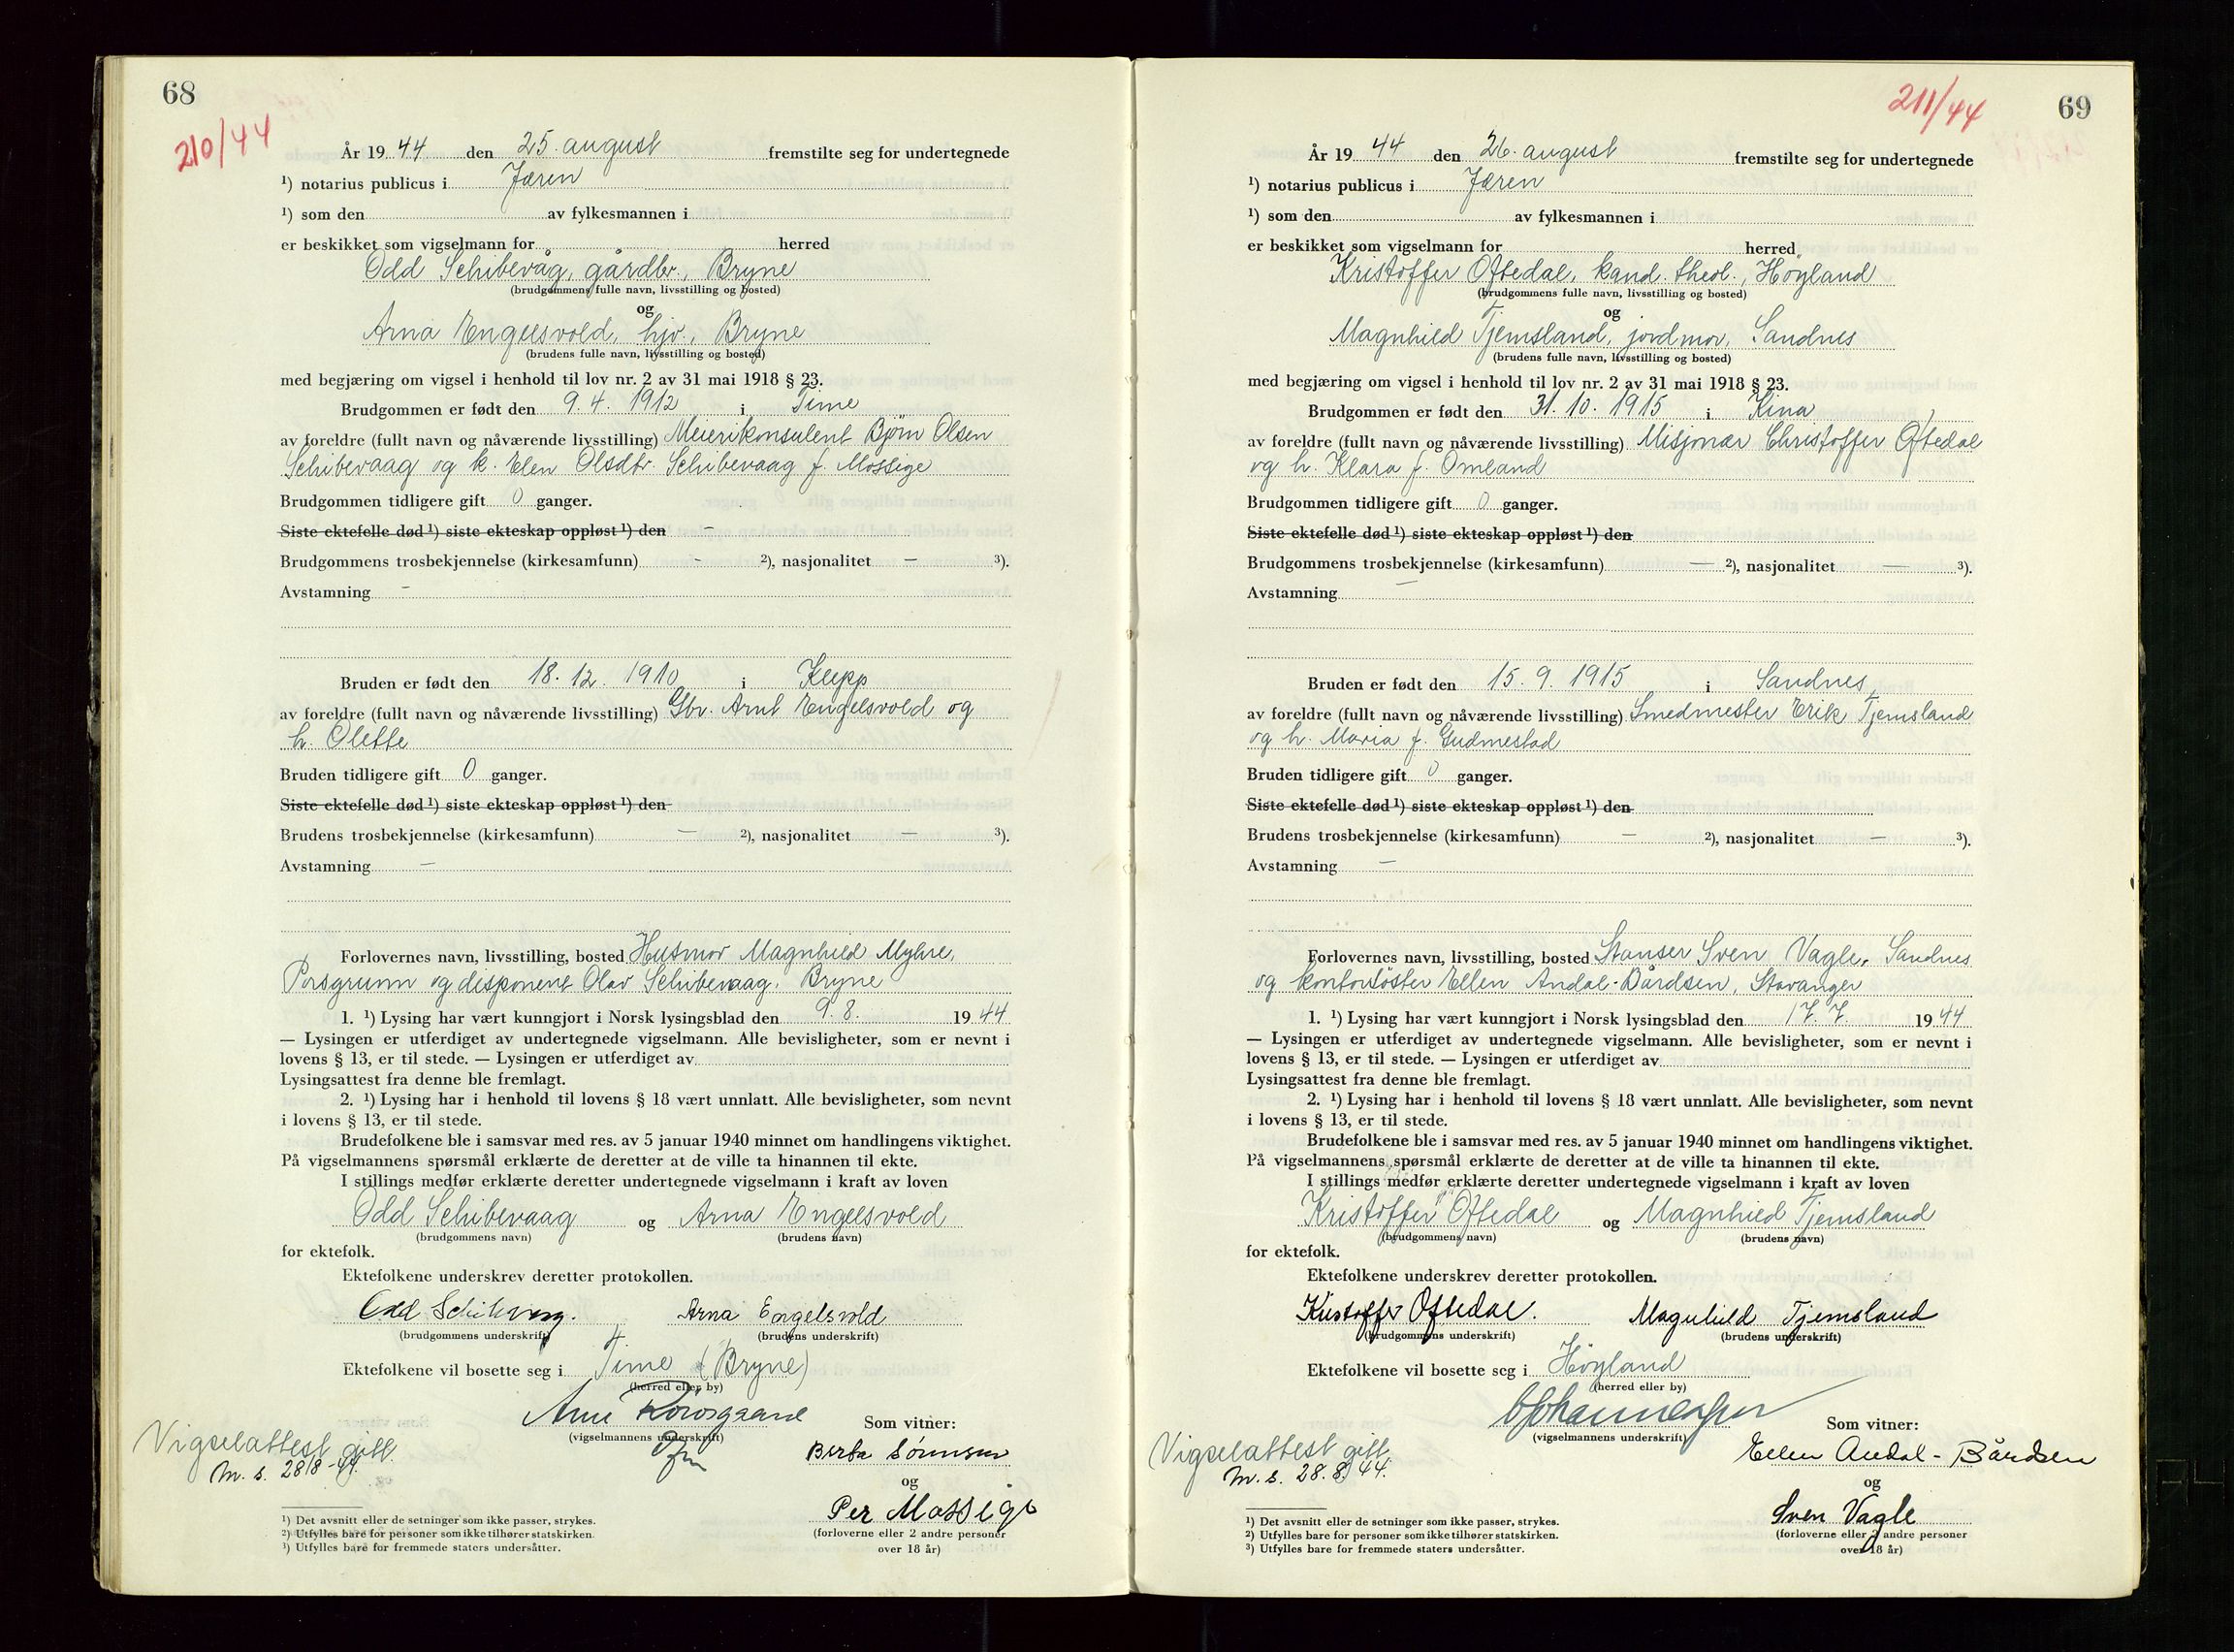 68
210/44
År 1944 den 25. august fremstilte seg for undertegnede
¹) notarius publicus i Jæren
¹) som den av fylkesmannen i
er beskikket som vigselmann for herred
Odd Schibevåg, gårdbr., Bryne
(brudgommens fulle navn, livsstilling og bosted)
og
Arna Engelsvold, hjv., Bryne
(brudens fulle navn, livsstilling og bosted)
med begjæring om vigsel i henhold til lov nr. 2 av 31 mai 1918 § 23.
Brudgommen er født den 9. 4. 1912 i Time
av foreldre (fullt navn og nåværende livsstilling) Meierikonsulent Bjørn Olsen
Schibevaag og k. Elen Olsdtr. Schibevaag f. Mossige
Brudgommen tidligere gift 0 ganger.
Siste ektefelle død ¹) siste ekteskap oppløst ¹) den -
Brudgommens trosbekjennelse (kirkesamfunn) - ²), nasjonalitet — ³).
Avstamning -
Bruden er født den 18. 12. 1910 i Klepp
av foreldre (fullt navn og nåværende livsstilling) Gbr. Arnt Engelsvold og
h. Olette
Bruden tidligere gift 0 ganger.
Siste ektefelle død ¹) siste ekteskap oppløst ¹) den
Brudens trosbekjennelse (kirkesamfunn) — ²), nasjonalitet — ³).
Avstamning —
Forlovernes navn, livsstilling, bosted Husmor Magnhild Myhre,
Porsgrunn og disponent Olav Schibevaag, Bryne
1. ¹) Lysing har vært kunngjort i Norsk lysingsblad den 9. 8. 1944
— Lysingen er utferdiget av undertegnede vigselmann. Alle bevisligheter, som er nevnt i
lovens § 13, er til stede. — Lysingen er utferdiget av
Lysingsattest fra denne ble fremlagt.
2. ¹) Lysing har i henhold til lovens § 18 vært unnlatt. Alle bevisligheter, som nevnt
i lovens § 13, er til stede.
Brudefolkene ble i samsvar med res. av 5 januar 1940 minnet om handlingens viktighet.
På vigselmannens spørsmål erklærte de deretter at de ville ta hinannen til ekte.
I stillings medfør erklærte deretter undertegnede vigselmann i kraft av loven
Odd Schibevaag og Arna Engelsvold
(brudgommens navn) (brudens navn)
for ektefolk.
Ektefolkene underskrev deretter protokollen.
Odd Schibevåg. Arna Engelsvold
(brudgommens underskrift) (brudens underskrift)
Ektefolkene vil bosette seg i Time (Bryne)
(herred eller by)
Arne
(vigselmannens underskrift) Som vitner:
Vigselattest gitt.
M. s. 28/8-44.
Berta Sørensen
og
Per Mossige
(forloverne eller 2 andre personer
over 18 år)
¹) Det avsnitt eller de setninger som ikke passer, strykes.
²) Utfylles bare for personer som ikke tilhører statskirken.
³) Utfylles bare for fremmede staters undersåtter.
69
211/44
År 1944 den 26. august fremstilte seg for undertegnede
¹) notarius publicus i Jæren
¹) som den av fylkesmannen i
er beskikket som vigselmann for herred
Kristoffer Oftedal, kand. theol., Høyland
(brudgommens fulle navn, livsstilling og bosted)
og
Magnhild Tjemsland, jordmor, Sandnes
(brudens fulle navn, livsstilling og bosted)
med begjæring om vigsel i henhold til lov nr. 2 av 31 mai 1918 § 23.
Brudgommen er født den 31. 10. 1915 i Kina
av foreldre (fullt navn og nåværende livsstilling) Misjonær Christoffer Oftedal
og h. Klara f. Omland
Brudgommen tidligere gift 0 ganger.
Siste ektefelle død ¹) siste ekteskap oppløst ¹) den
Brudgommens trosbekjennelse (kirkesamfunn) — ²), nasjonalitet — ³).
Avstamning —
Bruden er født den 15. 9. 1915 i Sandnes
av foreldre (fullt navn og nåværende livsstilling) Smedmester Erik Tjemsland
og h. Maria f. Gudmestad
Bruden tidligere gift 0 ganger.
Siste ektefelle død ¹) siste ekteskap oppløst ¹) den
Brudens trosbekjennelse (kirkesamfunn) — ²), nasjonalitet — ³).
Avstamning —
Forlovernes navn, livsstilling, bosted Stanser Sven Vagle, Sandnes
og kontorsøster Ellen Andal-Bårdsen, Stavanger
1. ¹) Lysing har vært kunngjort i Norsk lysingsblad den 17. 7. 1944
— Lysingen er utferdiget av undertegnede vigselmann. Alle bevisligheter, som er nevnt i
lovens § 13, er til stede. — Lysingen er utferdiget av
Lysingsattest fra denne ble fremlagt.
2. ¹) Lysing har i henhold til lovens § 18 vært unnlatt. Alle bevisligheter, som nevnt
i lovens § 13, er til stede.
Brudefolkene ble i samsvar med res. av 5 januar 1940 minnet om handlingens viktighet.
På vigselmannens spørsmål erklærte de deretter at de ville ta hinannen til ekte.
I stillings medfør erklærte deretter undertegnede vigselmann i kraft av loven
Kristoffer Oftedal og Magnhild Tjemsland
(brudgommens navn) (brudens navn)
for ektefolk.
Ektefolkene underskrev deretter protokollen.
Kristoffer Oftedal. Magnhild Tjemsland
(brudgommens underskrift) (brudens underskrift)
Ektefolkene vil bosette seg i Høyland
(herred eller by)
(vigselmannens underskrift) Som vitner:
Vigselattest gitt.
M. s. 28. 8. 44.
Ellen Andal-Bårdsen
og
Sven Vagle
(forloverne eller 2 andre personer
over 18 år)
¹) Det avsnitt eller de setninger som ikke passer, strykes.
²) Utfylles bare for personer som ikke tilhører statskirken.
³) Utfylles bare for fremmede staters undersåtter.